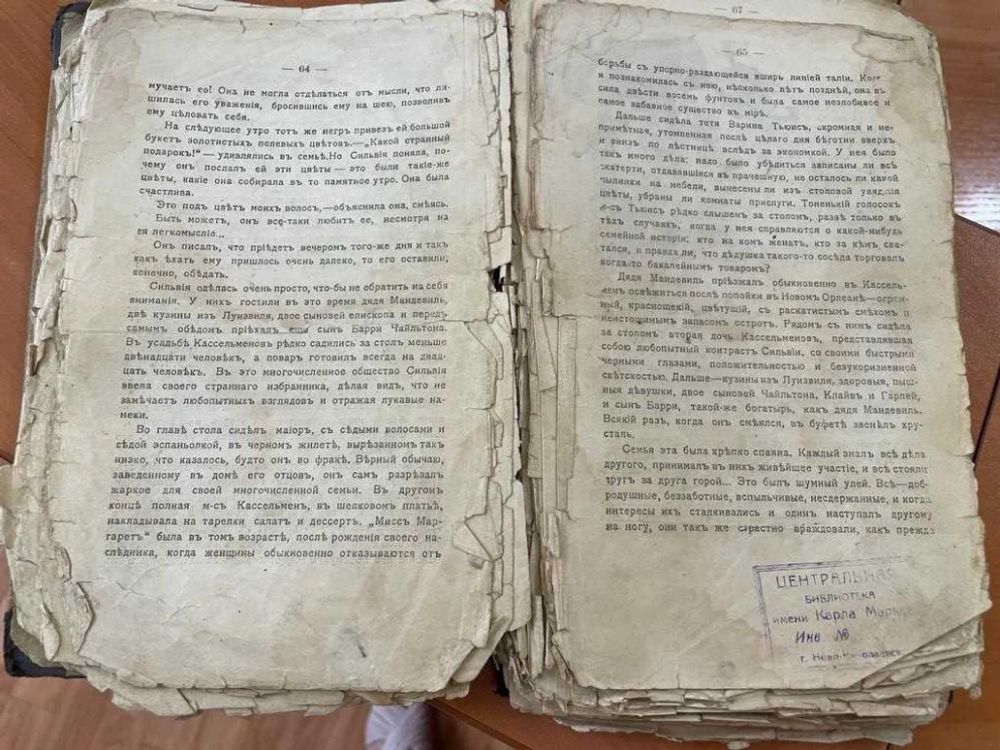 — 64 —
мучаетъ его! Она не могла отдѣлаться отъ мысли, что ли-
шилась его уваженія, бросившись ему на шею, позволивъ
ему цѣловать себя.
На слѣдующее утро тотъ же негръ привезъ ей большой
букетъ золотистыхъ полевыхъ цвѣтовъ.—„Какой странный
подарокъ!"—удивлялись въ семьѣ. Но Сильвія поняла, по-
чему онъ послалъ ей эти цвѣты—это были такіе-же
цвѣты, какіе она собирала въ то памятное утро. Она была
счастлива.
Это подъ цвѣтъ моихъ волосъ,—объяснила она, смѣясь.
Быть можетъ, онъ все-таки любитъ ее, несмотря на
ея легкомысліе...
Онъ писалъ, что пріѣдетъ вечеромъ того-же дня и такъ
какъ ѣхать ему пришлось очень далеко, то его оставили,
конечно, обѣдать.
Сильвія одѣлась очень просто, что-бы не обратить на себя
вниманія. У нихъ гостили въ это время дядя Мандевиль,
двѣ кузины изъ Луизвиля, двое сыновей епископа и передъ
самымъ обѣдомъ пріѣхалъ еще сынъ Барри Чайльтона.
Въ усадьбѣ Кассельменовъ рѣдко садились за столъ меньше
двѣнадцати человѣкъ, а поваръ готовилъ всегда на двад-
цать человѣкъ. Въ это многочисленное общество Сильвія
ввела своего страннаго избранника, дѣлая видъ, что не
замѣчаетъ любопытныхъ взглядовъ и отражая лукавые на-
меки.
Во главѣ стола сидѣлъ маіоръ, съ сѣдыми волосами и
сѣдой эспаньолкой, въ черномъ жилетѣ, вырѣзанномъ такъ
низко, что казалось, будто онъ во фракѣ. Вѣрный обычаю,
заведенному въ домѣ его отцовъ, онъ самъ разрѣзалъ
жаркое для своей многочисленной семьи. Въ другомъ
концѣ полная м-съ Кассельмен, въ шелковомъ платьѣ,
накладывала на тарелки салатъ и дессертъ. „Миссъ Мар-
гаретъ" была въ томъ возрастѣ, послѣ рожденія своего на-
слѣдника, когда женщины обыкновенно отказываются отъ
— 67 —
— 65 —
борьбы съ упорно-раздающейся вширь линіей таліи. Когда
я познакомилась съ нею, нѣсколько лѣтъ позднѣй, она вѣ-
сила двѣсти восемь фунтовъ и была самое незлобивое и
самое забавное существо въ мірѣ.
Дальше сидѣла тетя Варина Тьюисъ, скромная и не-
примѣтная, утомленная послѣ цѣлаго дня бѣготни вверхъ
и внизъ по лѣстницѣ вслѣдъ за экономкой. У нея было
такъ много дѣла: надо было убѣдиться записаны ли всѣ
скатерти, отдававшіяся въ прачешную, не осталось ли какой
пылинки на мебели, вынесены ли изъ столовой увядшіе
цвѣты, убраны ли комнаты прислуги. Тоненькій голосокъ
м-съ Тьюисъ рѣдко слышенъ за столомъ, развѣ только въ
тѣхъ случаяхъ, когда у нея справляются о какой-нибудь
семейной исторіи; кто на комъ женатъ, кто за кѣмъ сва-
тался, и правда ли, что дѣдушка такого-то сосѣда торговалъ
когда-то бакалейнымъ товаромъ?
Дядя Мандевиль пріѣзжалъ обыкновенно въ Кассель-
менъ освѣжиться послѣ попойки въ Новомъ Орлеанѣ—огром-
ный, красношекій, цвѣтущій, съ раскатистымъ смѣхомъ и
неистощимымъ запасомъ остротъ. Рядомъ съ нимъ сидѣла
за столомъ вторая дочь Кассельменовъ, представлявшая
собою любопытный контрастъ Сильвіи, со своими быстрыми
черными глазами, положительностью и безукоризненной
свѣтскостью. Дальше—кузины изъ Луизвиля, здоровыя, пыш-
ныя дѣвушки, двое сыновей Чайльтона, Клайвъ и Гарлей,
и сынъ Барри, такой-же богатырь, какъ дядя Мандевиль.
Всякій разъ, когда онъ смѣялся, въ буфетѣ звенѣлъ хру-
сталь.
Семья эта была крѣпко спаяна. Каждый зналъ всѣ дѣла
другого, принималъ въ нихъ живѣйшее участіе, и всѣ стояли
другъ за друга горой... Это былъ шумный улей. Всѣ—доб-
родушные, беззаботные, вспыльчивые, несдержанные, и когда
интересы ихъ сталкивались и одинъ наступалъ другому
на ногу, они такъ же страстно враждовали, какъ прежде
ЦЕНТРАЛЬНАЯ
БИБЛИОТЕКА
имени Карла Маркса
Инв №
г. Ново-Николаевск